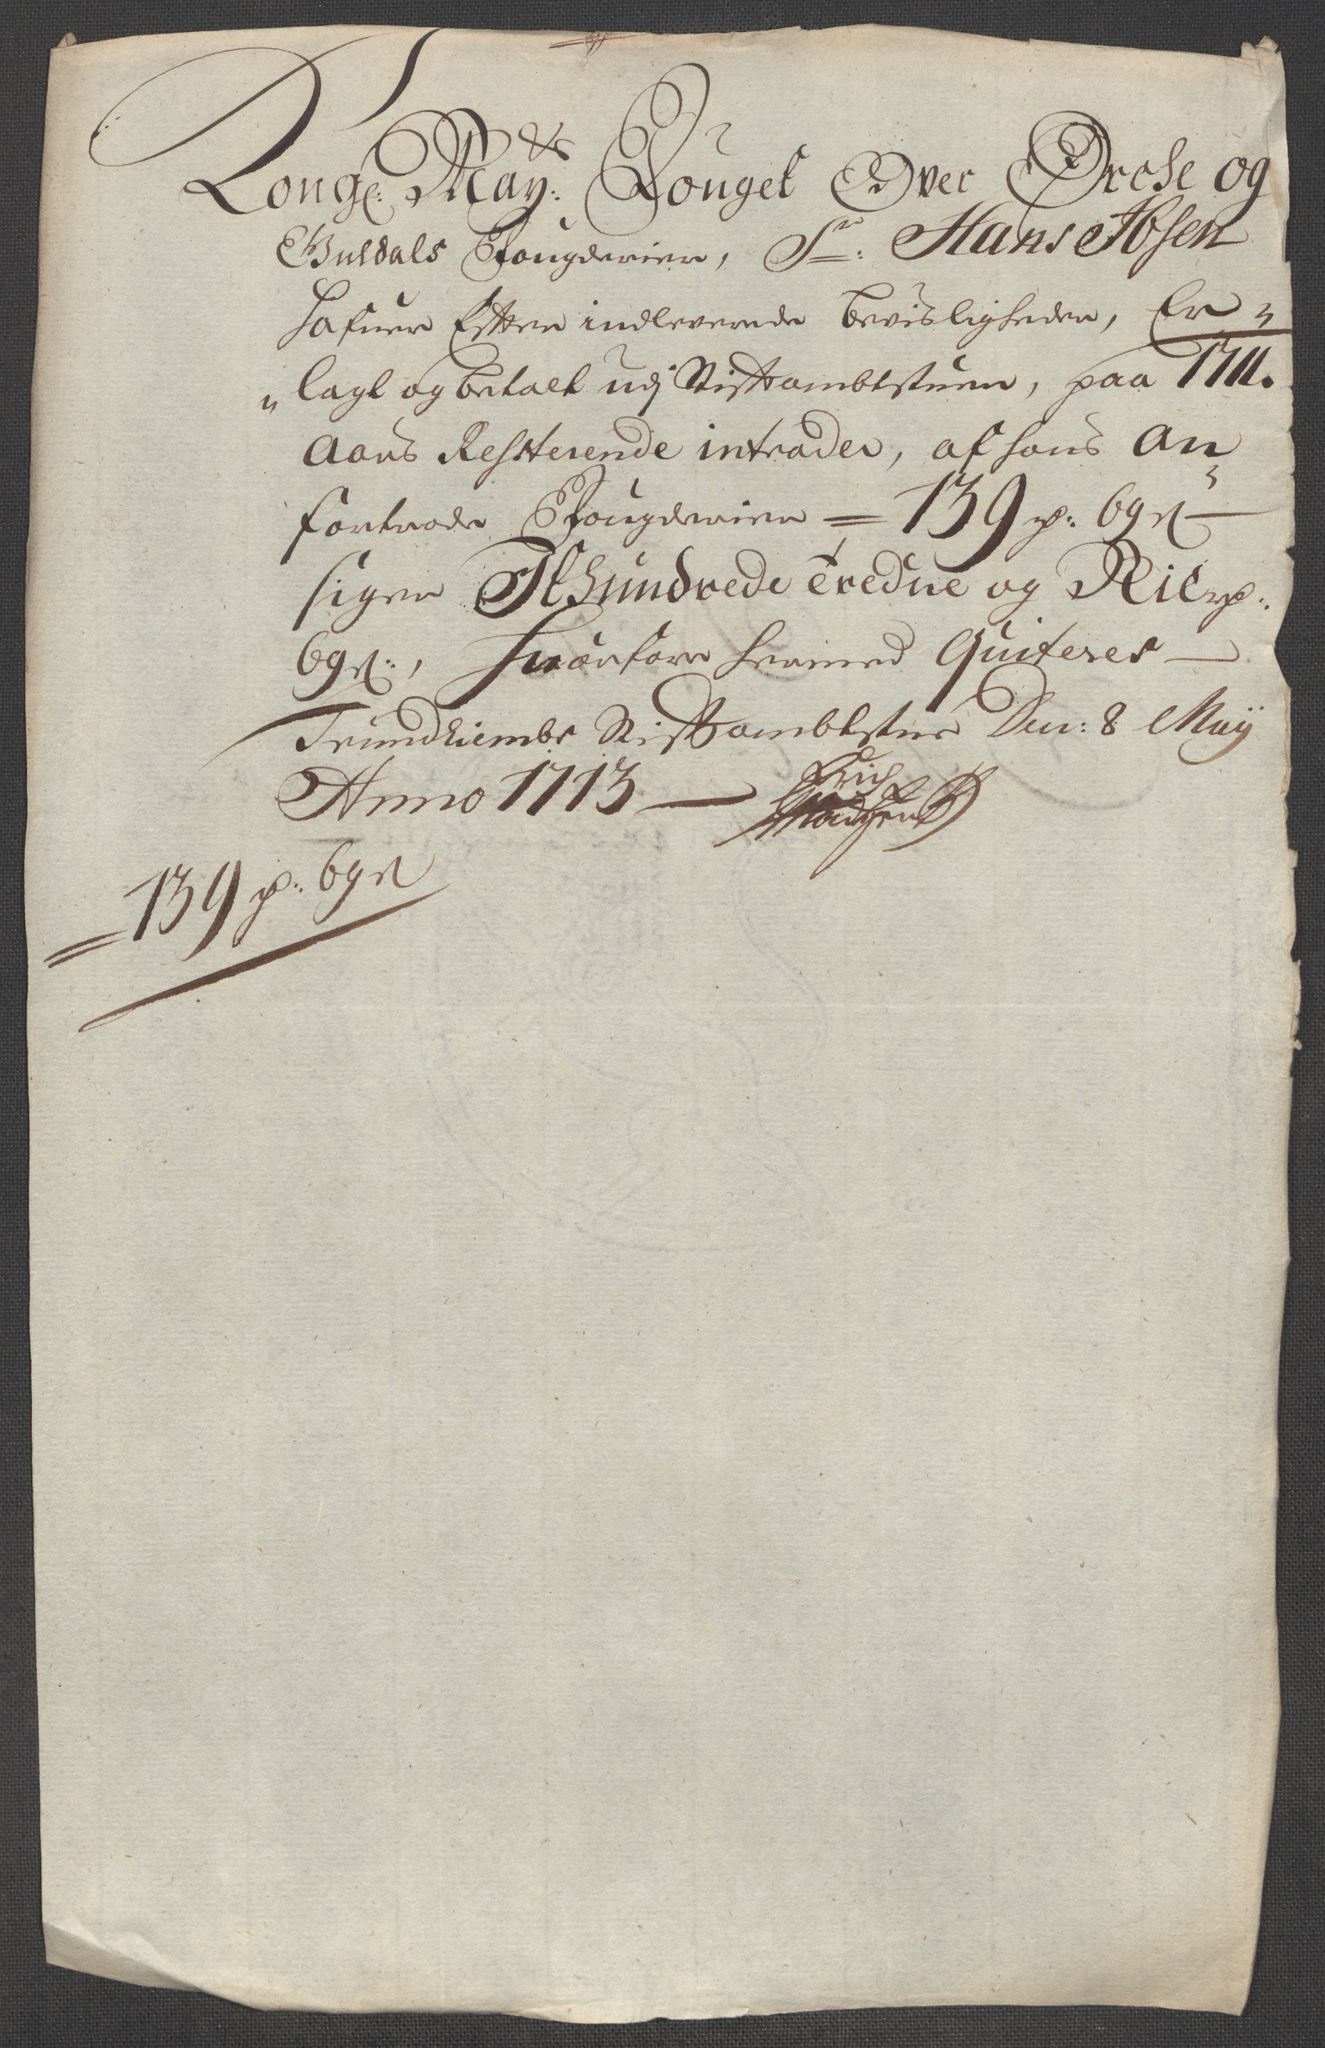 Kong: May:ts Fouget Over Orche og
Guldals Fougderier, Sr: Hans Ibsen
hafuer Effter indleverede bevisligheder, Er-
"lagt og betalt udj Stifftambtstuen, paa 1711.
Aars Resterende intrader, af hans An
fortrode Fougderier = 139 rd: 69 s -
siger Et Hundrede Tredive og Ni rd:
69 s:, hvorfore hermed Quiteres -
Trundhiembs Stifftambtstue Den: 8 Maÿ
Anno 1713 - Erich
Madsen
= 139 rd: 69 s